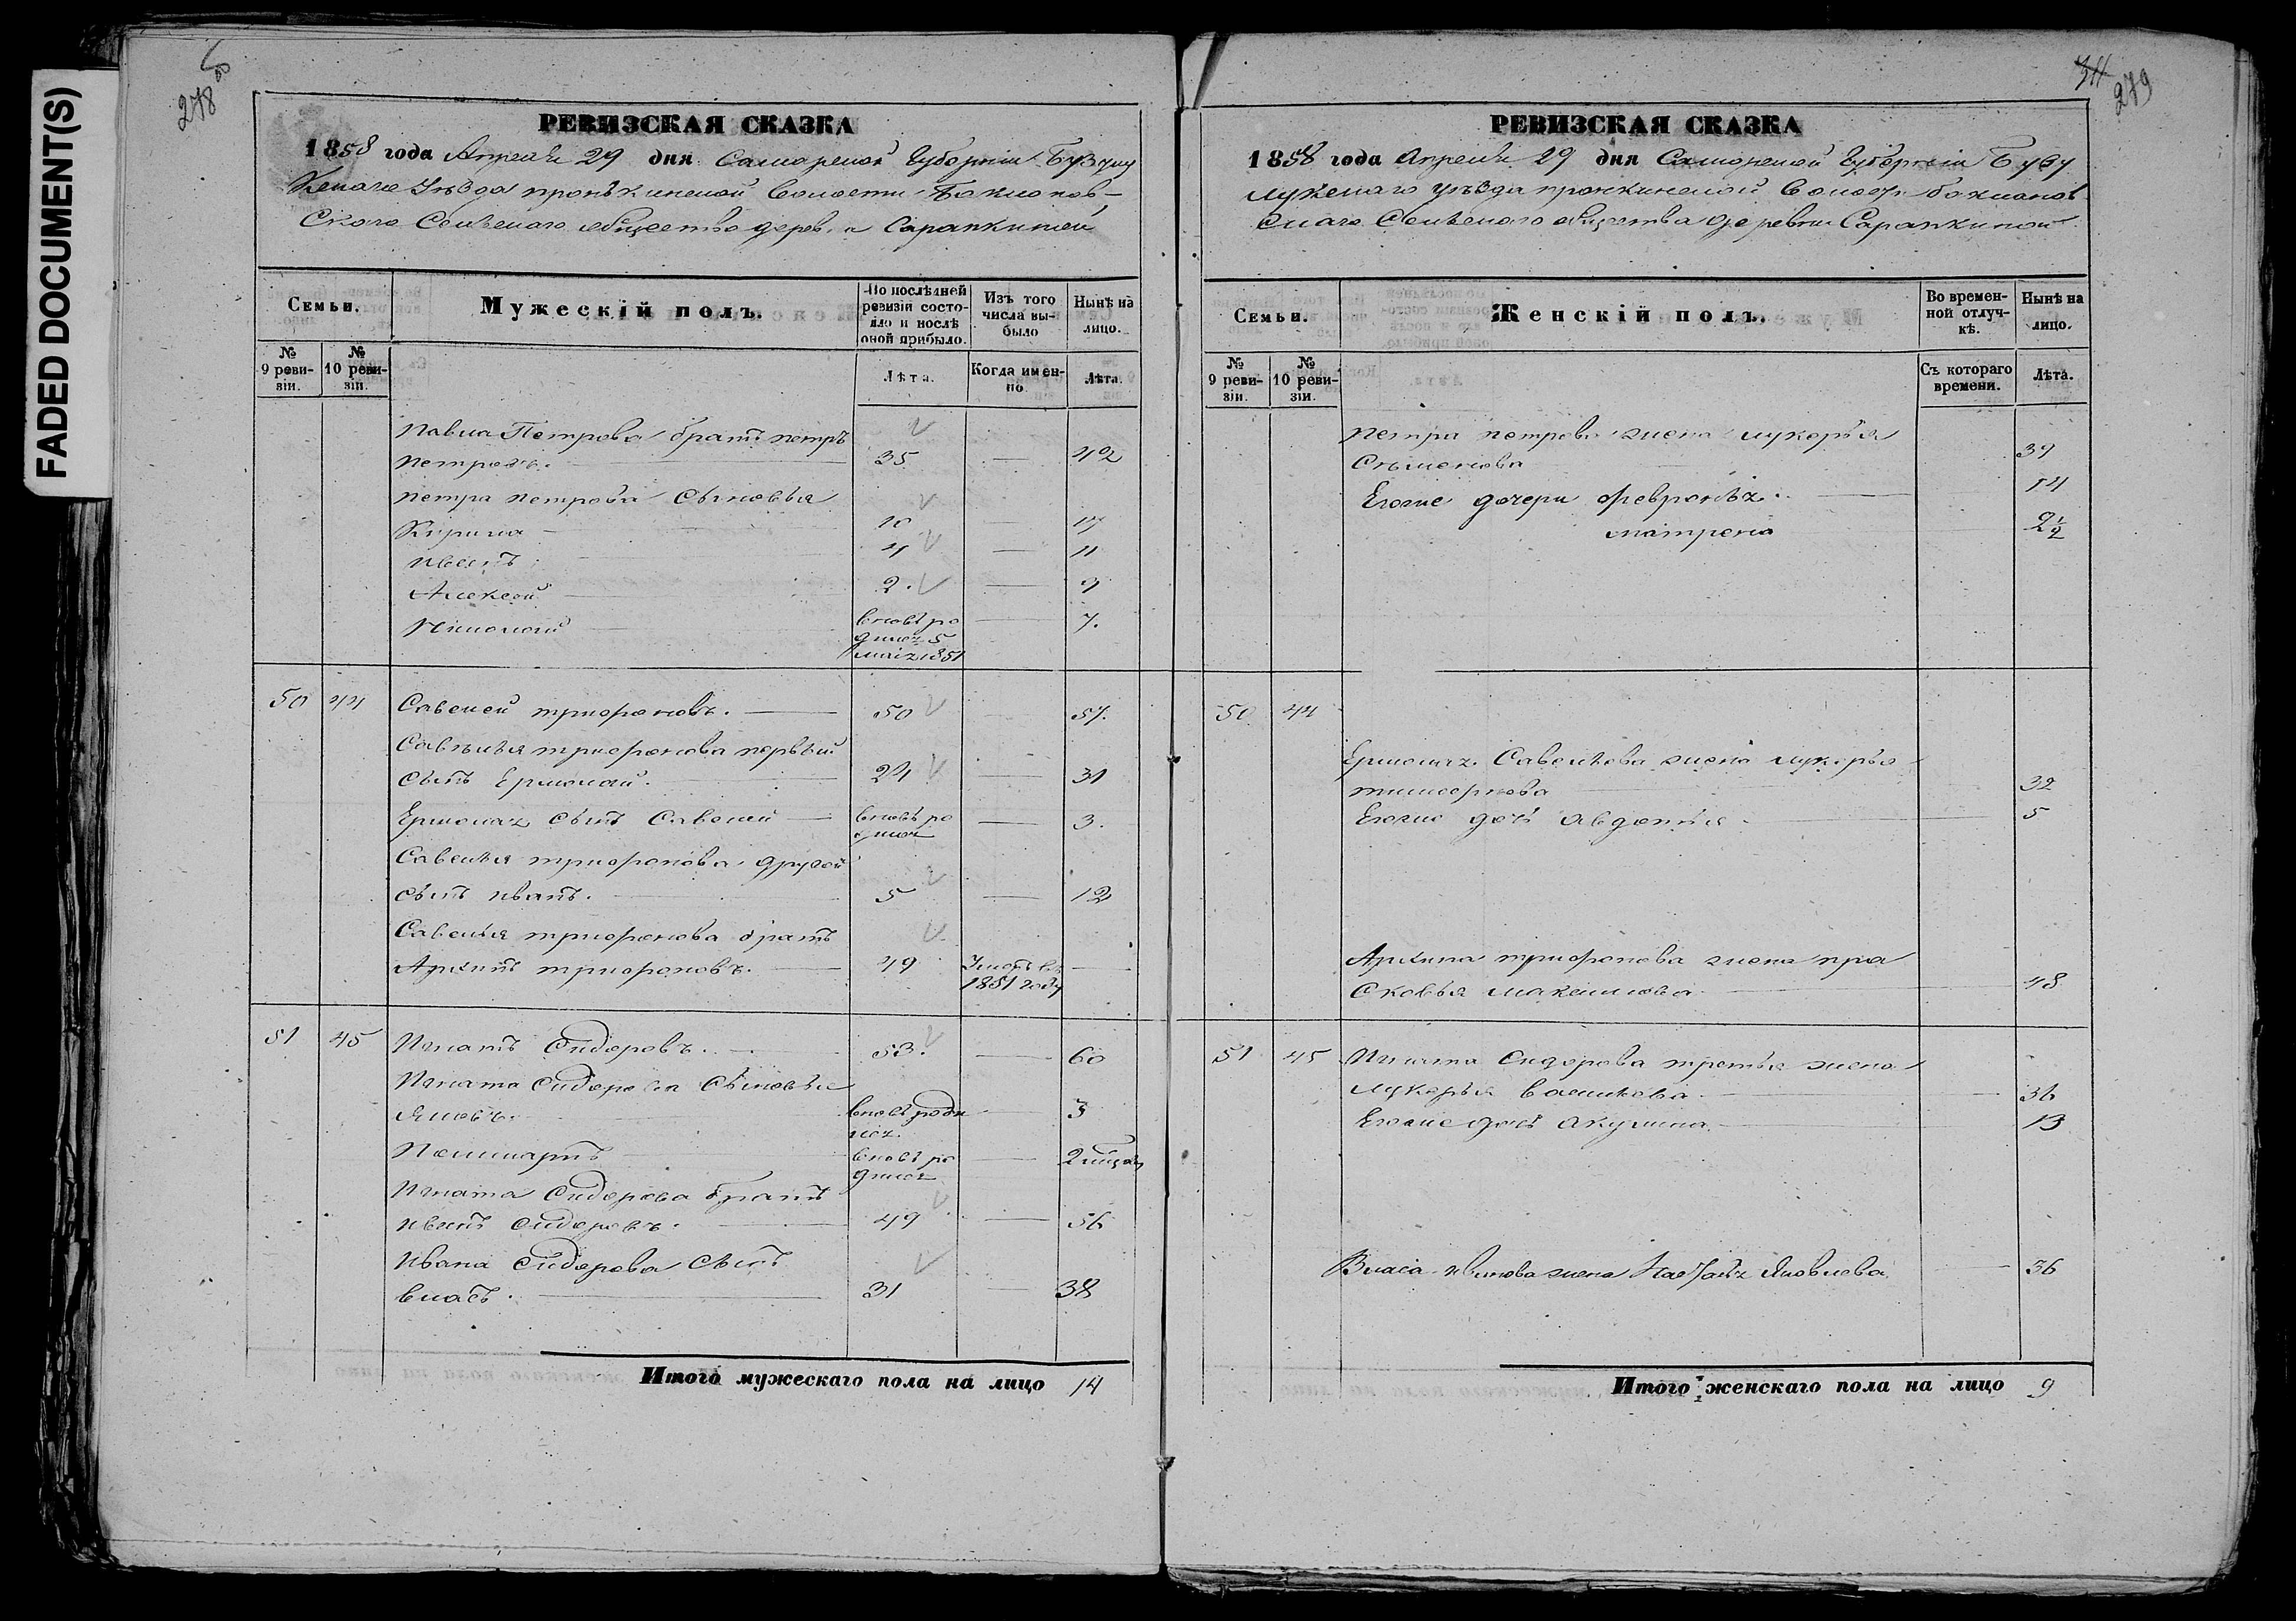 FADED DOCUMENT(S)
278
РЕВИЗСКАЯ СКАЗКА
1858 года Апреля 29 дня Самарской Губерніи Бузулу
Скаго Сельскаго общества дерев
Семьи.
Мужескій полъ.
По послѣдней ревизіи состояло и послѣ оной прибыло.
Изъ того числа выбыло
Нынѣ на лицо.
№ 9 ревизіи.
№ 10 ревизіи.
Лѣта.
Когда именно
Лѣта.
Павла Петрова братъ петръ
петровъ. 35 — 42
петра петрова сыновья
Кирила 10 — 17
4 — 11
Алексей 2 — 9
вновь ро 7.
дился 5
маія 1851
50 44 Савелей трифоновъ. 50 57.
Савелья трифонова первый
сынъ Ермолай. 24 — 31
Ермолая сынъ Савелей вновь ро — 3.
дился
Савелья трифонова другой
сынъ иванъ. 5 — 12
Савелья трифонова братъ
Архипъ трифоновъ. 49 —
1851 году
51 45 Игнатъ Сидоровъ. 53. — 60
Игната Сидорова Сыновья
Яковъ. вновь роди — 3
лся.
вновь ро — 2
дился
Игната Сидорова братъ
иванъ Сидоровъ. 49 — 56
Ивана Сидорова Сынъ
власъ. 31 — 38
Итого мужескаго пола на лицо 14
279
РЕВИЗСКАЯ СКАЗКА
1858 года Апреля 29 дня Самарской Губерніи Бузу
лукскаго уѣзда волости
скаго Сельскаго общества деревни
Семьи.
Женскій полъ.
Во временной отлучкѣ.
Нынѣ на лицо.
№ 9 ревизіи.
№ 10 ревизіи.
Съ котораго времени.
Лѣта.
петра петрова жена лукерья
Сѣменова 39
Егоже дочери февронья 14
матрена 2½
50 44
Ермолая Савельева жена лукерья
тимофеева 32
Егоже дочь авдотья 5
Архипа трифонова жена пра
сковья максимова 48
51 45 Игната Сидорова третья жена
лукерья васильева 36
Егоже дочь акулина 13
Власа иванова жена Яковлева 36
Итого женскаго пола на лицо 9